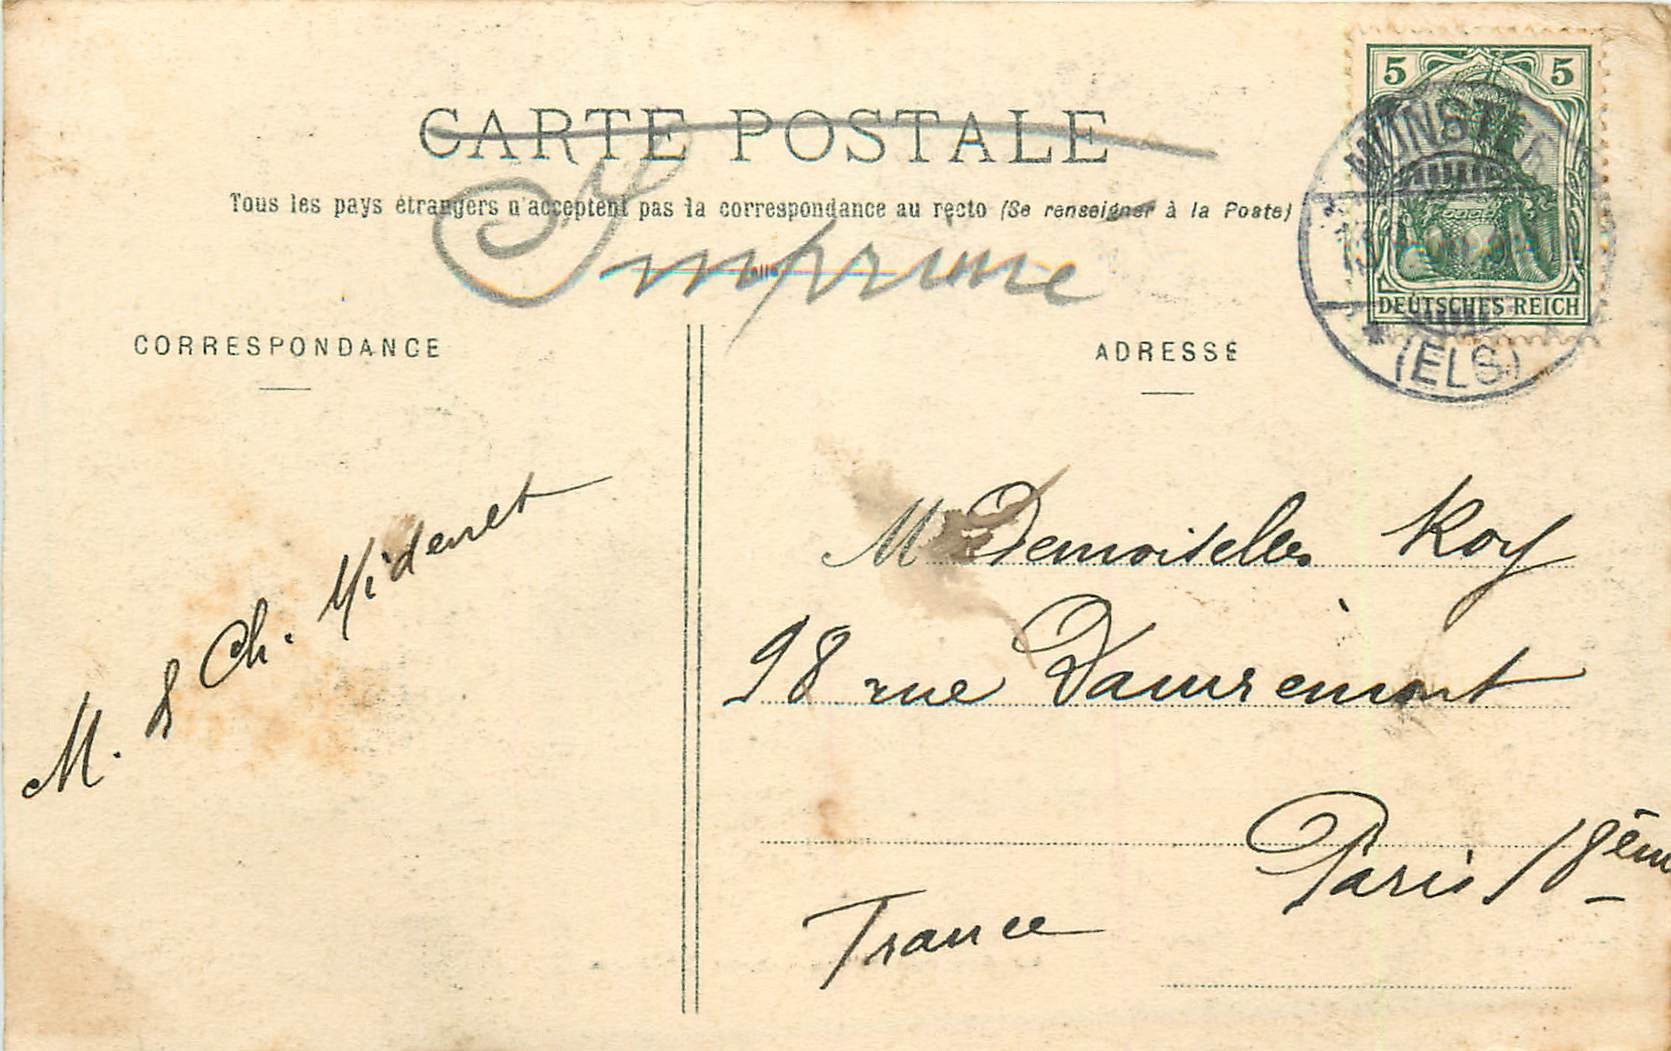 CARTE POSTALE
Tous les pays étrangers n'acceptent pas la correspondance au recto (Se renseigner à la Poste)
Imprimé
CORRESPONDANCE
ADRESSE
5 5
DEUTSCHES REICH
MÜNSTER
(ELS)
M. & Ch.
MesDemoiselles Roy
98 rue Damrémont
Paris 18ème
France